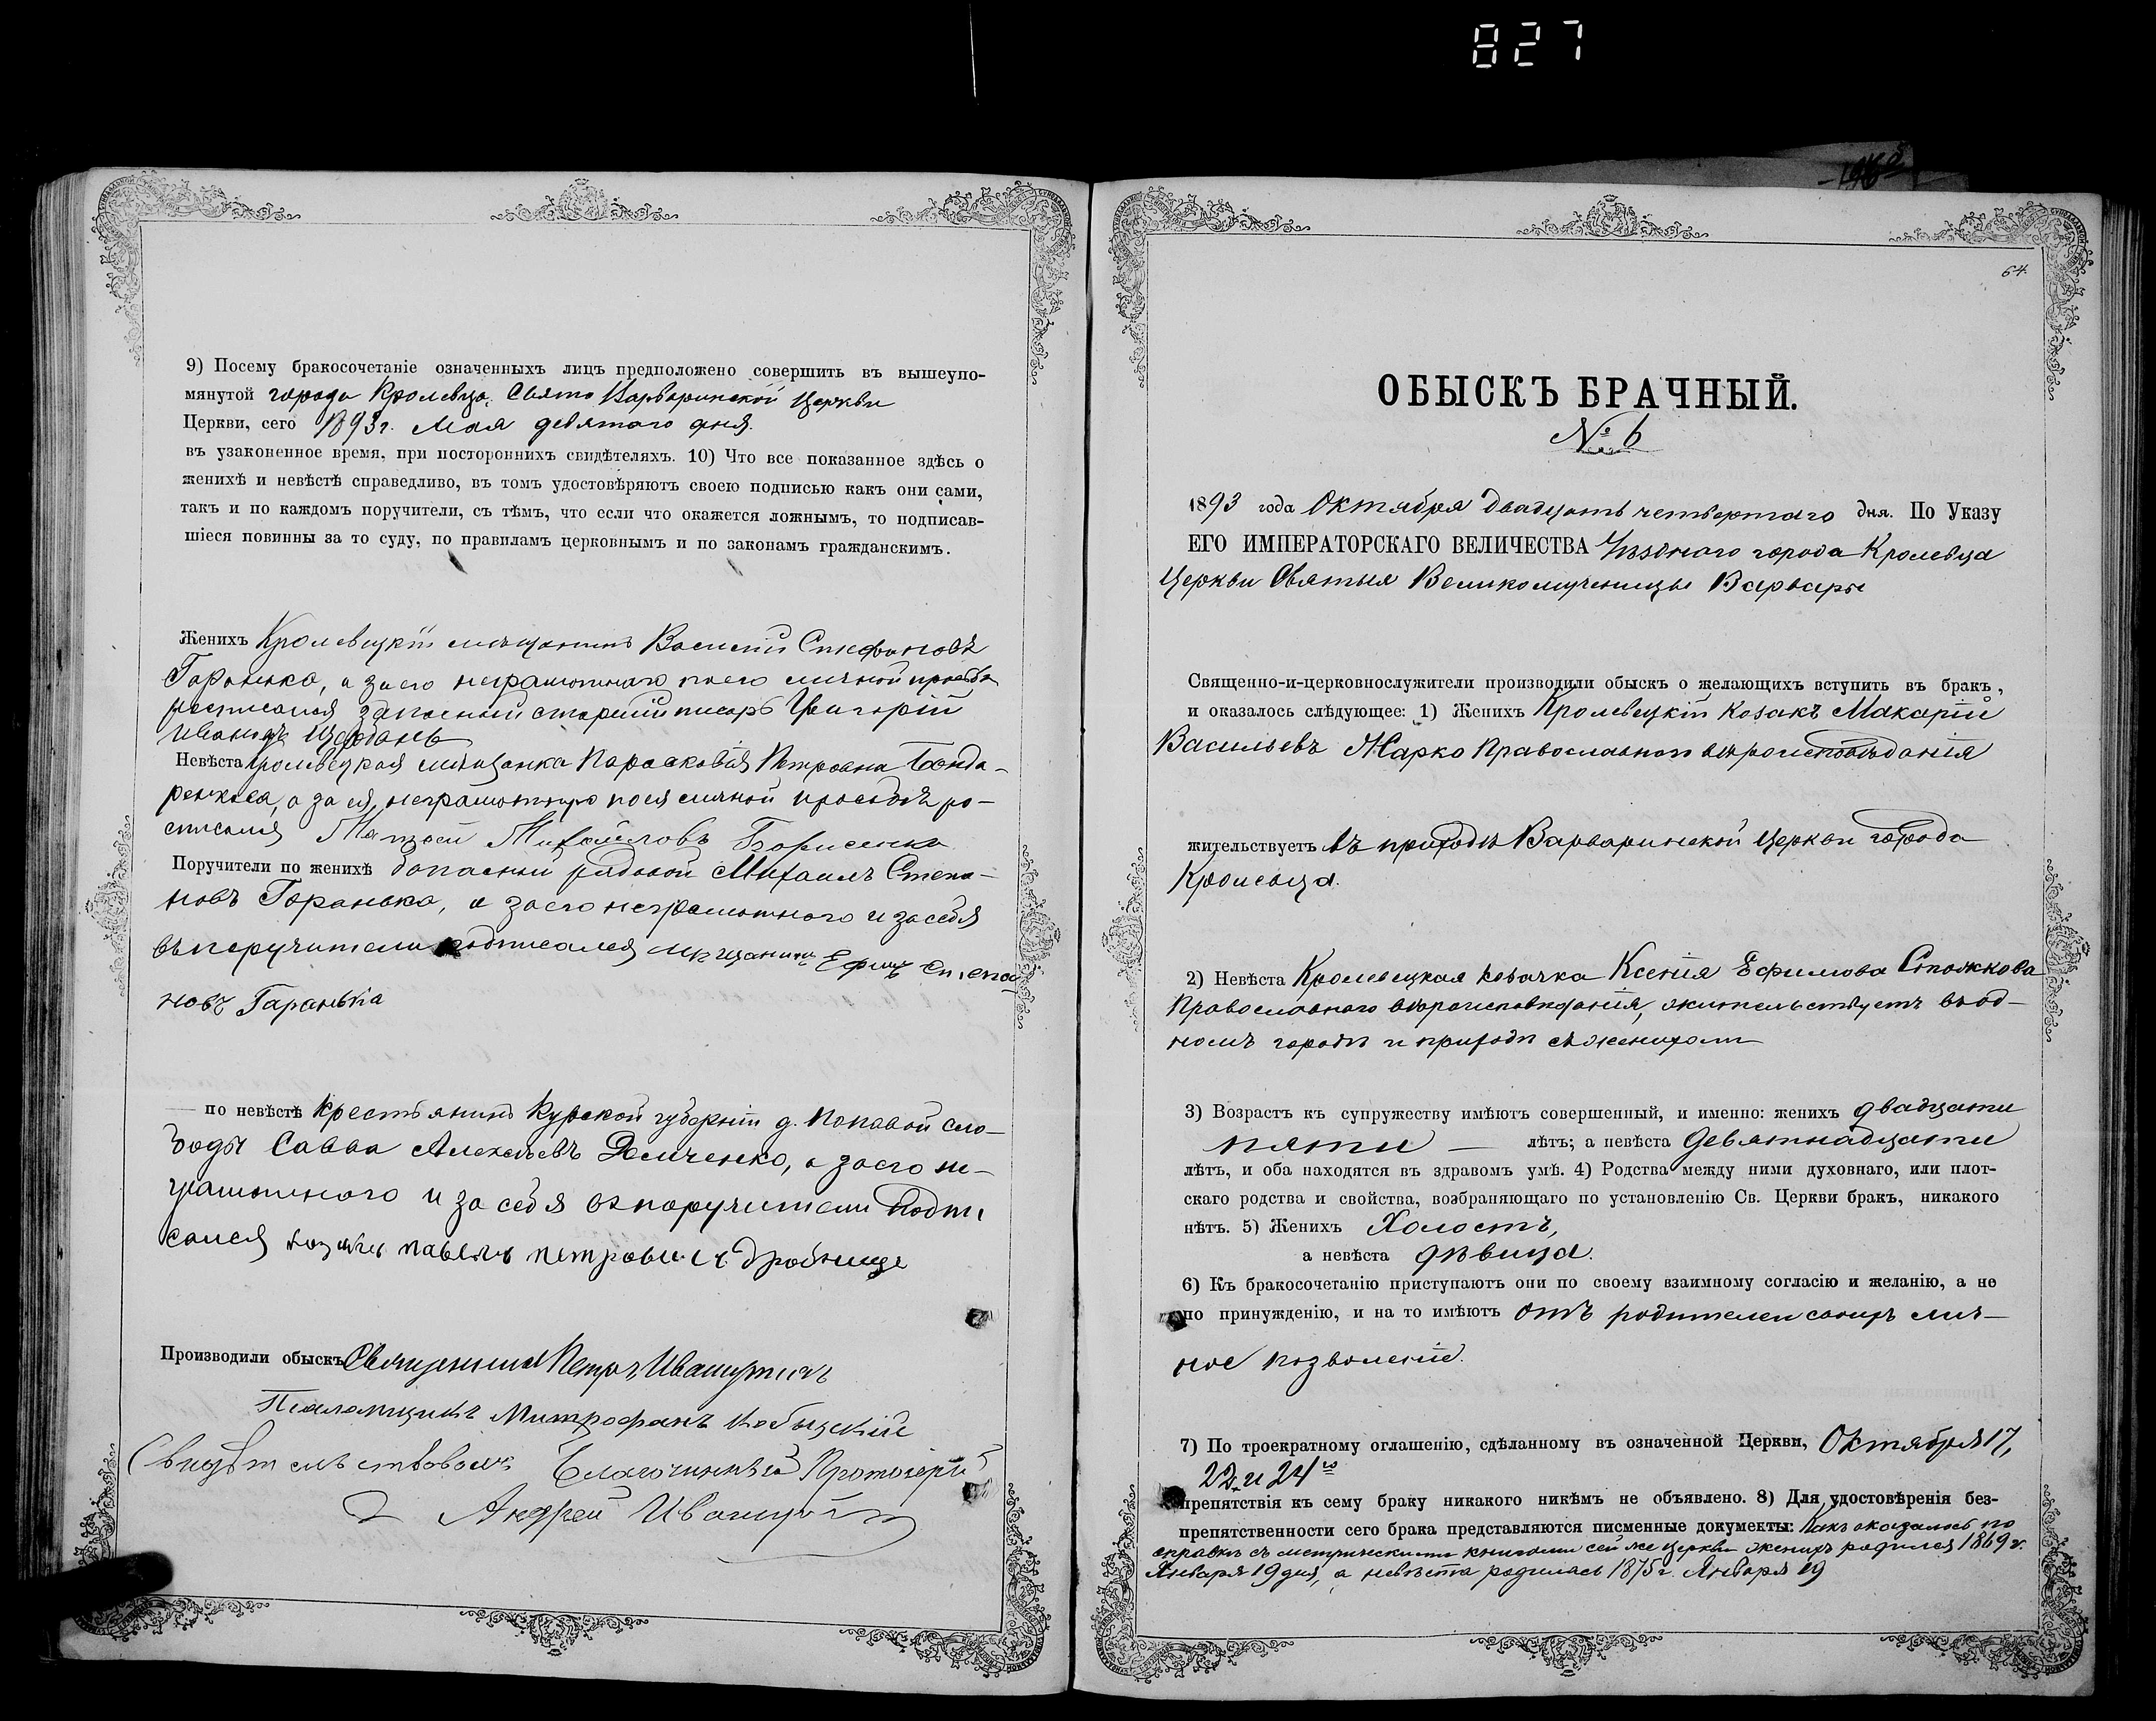 827
9) Посему бракосочетаніе означенныхъ лицъ предположено совершить въ вышеупо-
мянутой города Кролевца, Свято Варваринской Церкви
Церкви, сего 1893 г. Мая девятого дня.
въ узаконенное время, при постороннихъ свидѣтеляхъ. 10) Что все показанное здѣсь о
женихѣ и невѣстѣ справедливо, въ томъ удостовѣряютъ своею подписью какъ они сами,
такъ и по каждомъ поручители, съ тѣмъ, что если что окажется ложнымъ, то подписав-
шіеся повинны за то суду, по правиламъ церковнымъ и по законамъ гражданскимъ.
Женихъ Кролевецкій мѣщанинъ Василій Стефановъ
Горонько, а за его неграмотного по его личной просьбѣ
росписался запасный старшій писарь Григорій
Ивановъ
Невѣста Кролевецкая мѣщанка Парасковія Петровна Бонда-
ренкова, а за ея неграмотную по ея личной просьбѣ ро-
списался Матвей Михайловъ Борисенко
Поручители по женихѣ запасный рядовой Михаилъ Степа-
новъ Горонько, а за его неграмотного и за себя
въ поручители подписался мѣщанинъ Ефимъ Степа
новъ Гаранька
— по невѣстѣ Крестьянинъ Курской губерніи д. Поповой сло-
боды Савва Алексѣевъ Демченко, а за его не-
грамотного и за себя въ поручители подпи
сался козакъ павелъ петровичъ
Производили обыскъ Священникъ Петръ Ивашутичъ
Псаломщикъ Митрофанъ
Свидѣтельствовалъ Благочинный Протоіерей
Андрей
64
ОБЫСКЪ БРАЧНЫЙ.
№ 6
1893 года Октября двадцать четвертаго дня. По Указу
ЕГО ИМПЕРАТОРСКАГО ВЕЛИЧЕСТВА Уѣзднаго города Кролевца
Церкви Святыя Великомученицы Варвары
Священно-и-церковнослужители производили обыскъ о желающихъ вступить въ бракъ,
и оказалось слѣдующее: 1) Женихъ Кролевецкій козакъ Макарій
Васильевъ Жарко Православнаго вѣроисповѣданія
жительствуетъ въ приходѣ Варваринской Церкви города
Кролевца.
2) Невѣста Кролевецкая козачка Ксенія Ефимова Сножкова
Православнаго вѣроисповѣданія, жительствуетъ въ од-
номъ городѣ и приходѣ съ женихомъ
3) Возрастъ къ супружеству имѣютъ совершенный, и именно: женихъ двадцати
пяти — лѣтъ; а невѣста девятнадцати
лѣтъ, и оба находятся въ здравомъ умѣ. 4) Родства между ними духовнаго, или плот-
скаго родства и свойства, возбраняющаго по установленію Св. Церкви бракъ, никакого
нѣтъ. 5) Женихъ Холостъ,
а невѣста дѣвица.
6) Къ бракосочетанію приступаютъ они по своему взаимному согласію и желанію, а не
по принужденію, и на то имѣютъ отъ родителей своихъ лич-
ное позволеніе.
7) По троекратному оглашенію, сдѣланному въ означенной Церкви, Октября 17,
22 и 24го
препятствія къ сему браку никакого никѣмъ не объявлено. 8) Для удостовѣренія без-
препятственности сего брака представляются писменные документы: Какъ оказалось по
справкѣ съ метрическими книгами сей же Церкви женихъ родился 1869 г.
Января 19 дня, а невѣста родилась 1875 г. Января 19